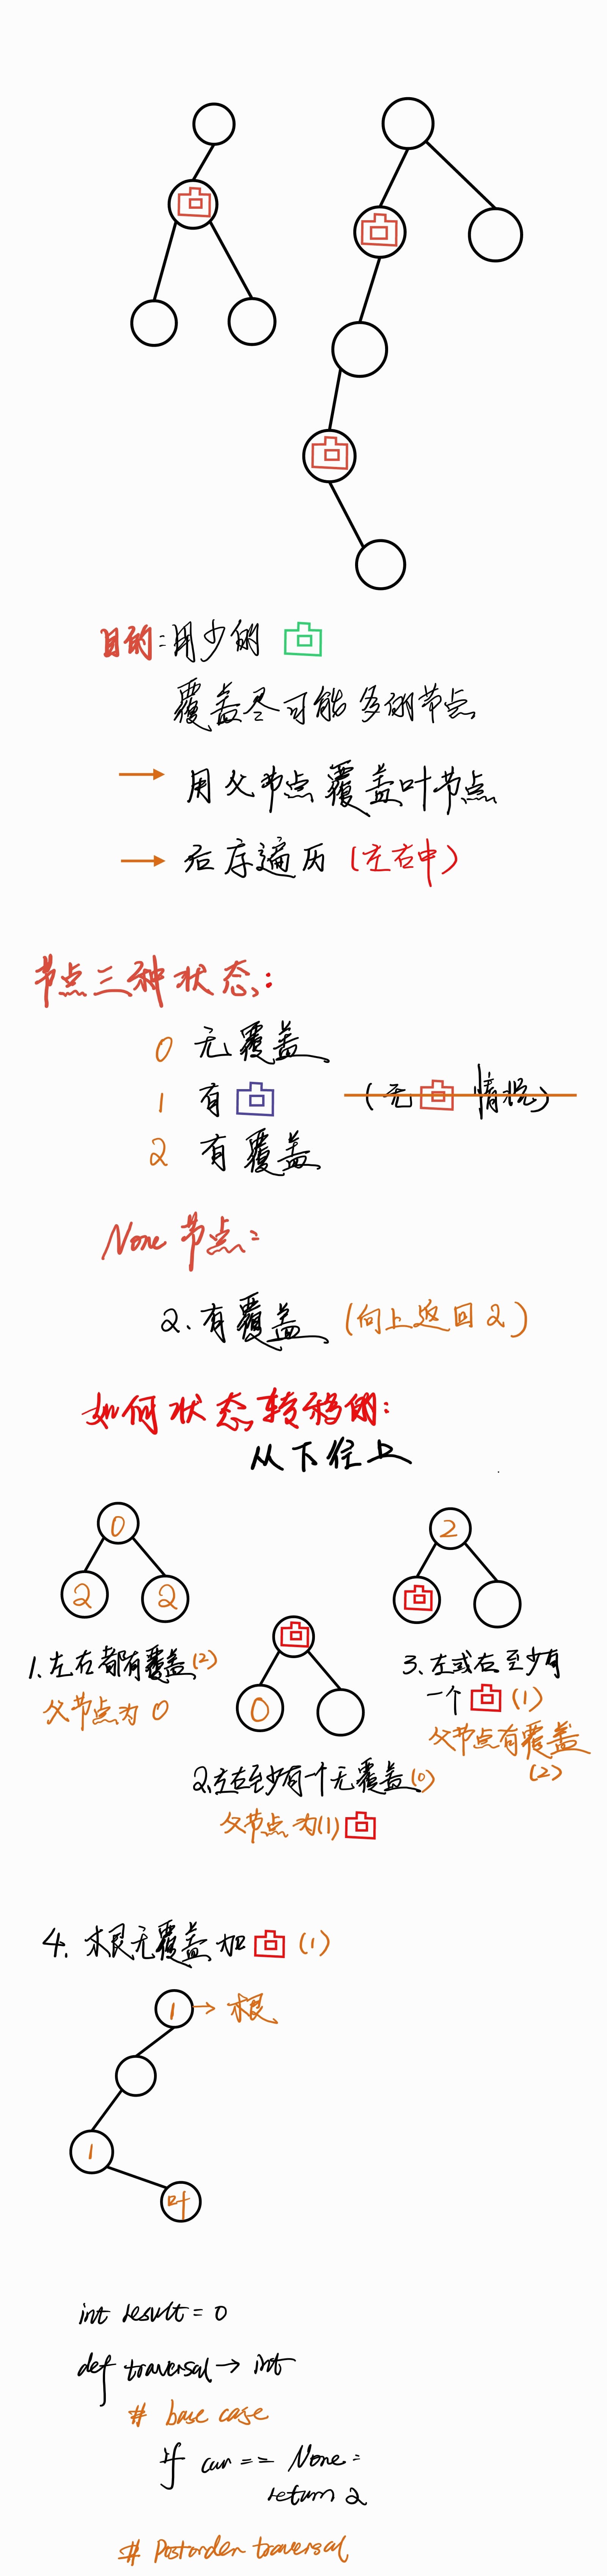 目的:用少的
覆盖尽可能多的节点
→ 用父节点覆盖叶节点
→ 后序遍历 (左右中)
节点三种状态:
0 无覆盖
1 有 (无 情况)
2 有覆盖
None 节点:
2. 有覆盖 (向上返回2)
如何状态转移的:
从下往上
0
2 2
2
0
1. 左右都有覆盖(2)
父节点为 0
2. 左右至少有一个无覆盖(0)
父节点为(1)
3. 左或右至少有
一个 (1)
父节点有覆盖
(2)
4. 根无覆盖加 (1)
1 → 根
1
叶
int result = 0
def traversal → int
# base case
if cur == None:
return 2
# Postorder traversal